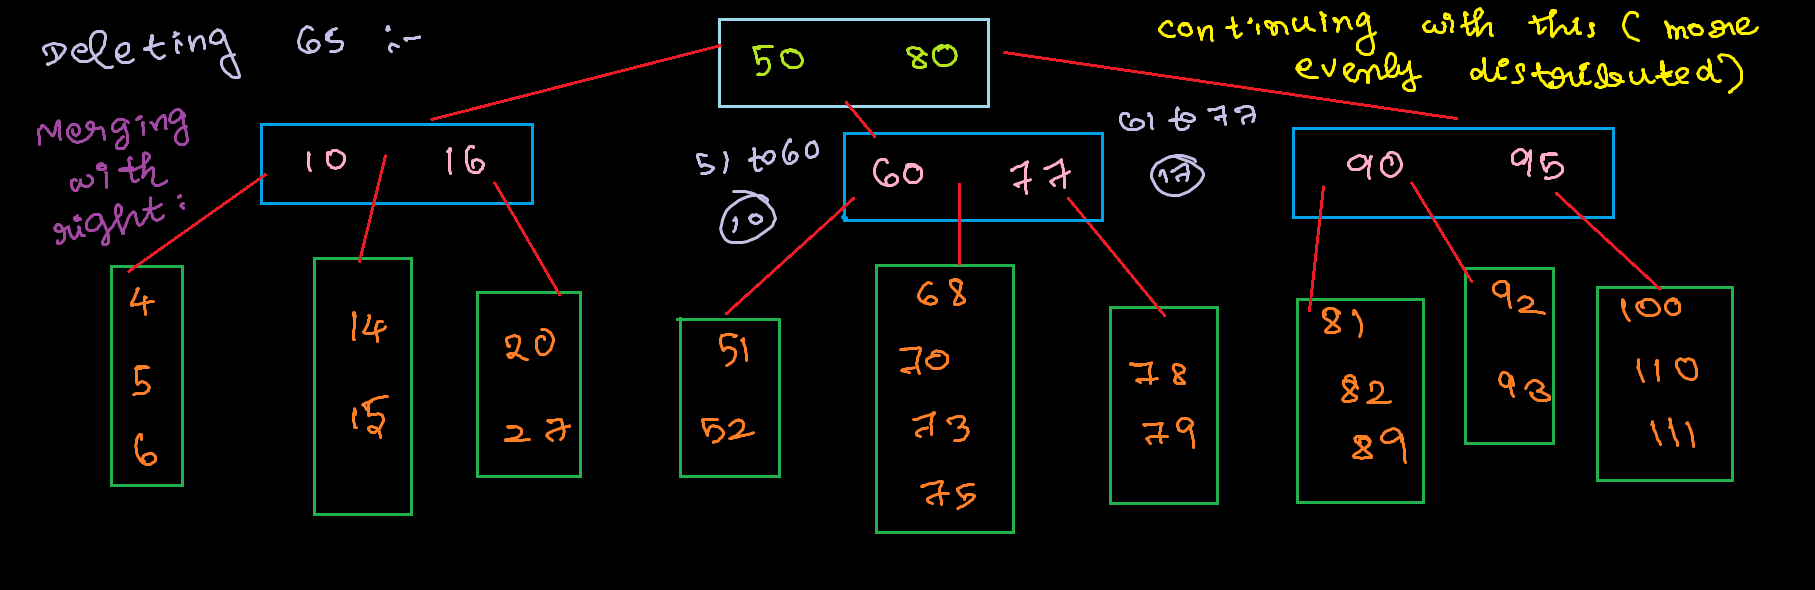 Deleting 65 :-
continuing with this ( more
evenly distributed )
50 80
Merging
with
right :
10 16
51 to 60
10
60 77
61 to 77
17
90 95
4
5
6
14
15
20
27
51
52
68
70
73
75
78
79
81
82
89
92
93
100
110
111